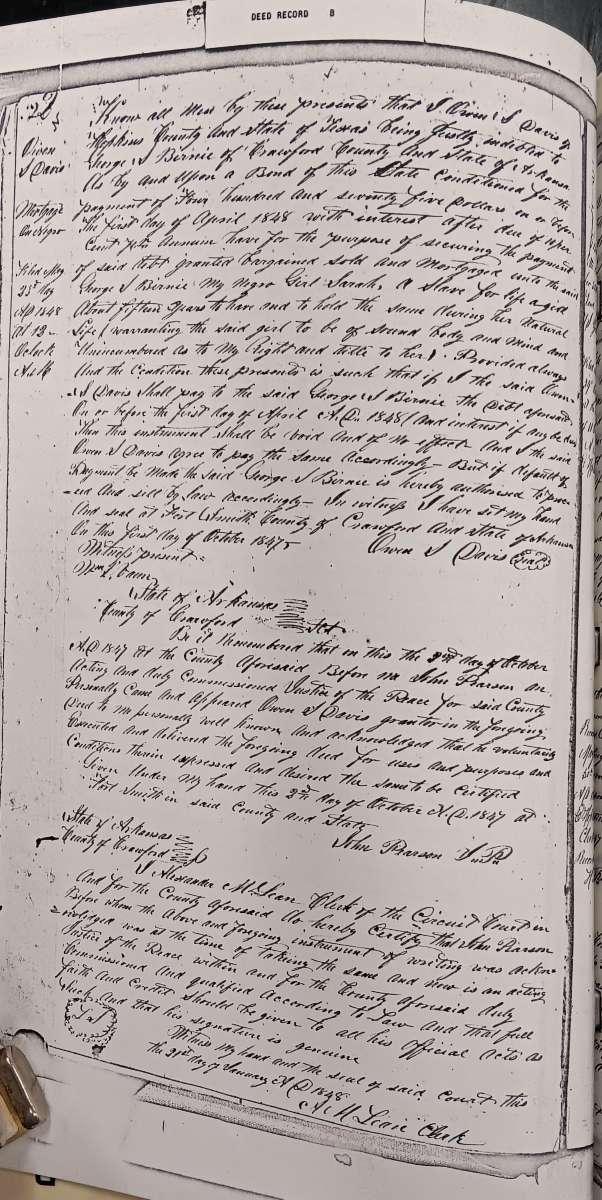 DEED RECORD B
322
Owen
S Davis
Mortgage
On Negro
Filed May
23rd day
AD 1848
at 12
Oclock
A.M
Know all Men by these presents that I Owen S Davis of
Hopkins County and State of Texas being justly indebted to
George S Birnie of Crawford County and State of Arkansas
As by and upon a Bond of this State Conditioned for the
payment of Four hundred and seventy five dollars on or before
The first day of April 1848 with interest after due if
Cent per Annum have for the purpose of securing the payment
of said debt granted bargained sold and Mortgaged unto the said
George S Birnie My Negro Girl Sarah, a Slave for life aged
About fifteen years to have and to hold the same during her Natural
Life (warranting the said girl to be of sound body and mind and
Unincumbered as to My Right and title to her). Provided always
And the Condition these presents is such that if I the said Owen
S Davis Shall pay to the said George S Birnie the debt aforesaid
On or before the first day of April A.D. 1848 (and interest if any be due
Then this instrument Shall be void and of no effect And I the said
Owen S Davis agree to pay the same Accordingly- But if default of
payment be Made the said George S Birnie is hereby authorised to proc
-eed and sell by law Accordingly- In witness I have set my hand
And seal at Fort Smith County of Crawford and State of Arkansas
On this first day of October 1847
Owen S Davis Seal
Witness present
State of Arkansas
County of Crawford Sct
Be it Remembered that on this the 2nd day of October
A.D 1847 At the County Aforesaid Before me John Pearson an
Acting and duly Commissioned Justice of the Peace for said County
Personally Came and Appeared Owen S Davis grantor in the foregoing
Deed to Me personally well known and acknowledged that he voluntarily
Executed and delivered the foregoing deed for uses and purposes and
Conditions therein expressed and desired the same to be Certified
Given Under My hand this 2nd day of October A.D. 1847 at
Fort Smith in said County and State
John Pearson J.P.
State of Arkansas
County of Crawford
I Alexander McLean Clerk of the Circuit Court in
And for the County aforesaid do hereby Certify that John Pearson
Before whom the Above and foregoing instrument of writing was ackno
-wledged was at the time of taking the same and now is an acting
Justice of the Peace within and for the County aforesaid duly
Commissioned And qualified According to Law And that full
faith and Credit Should be given to all his Official Acts as
Such And that his signature is genuine
Witness My hand and the seal of said Court this
the 21st day of January A D 1848
A McLean Clerk